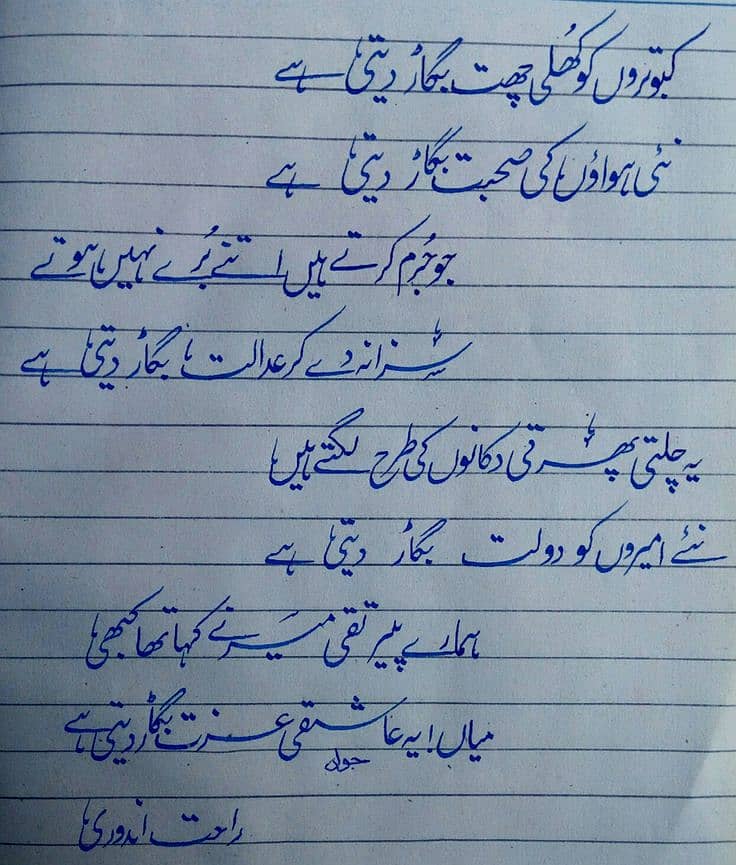 کبوتروں کو کھُلی چھت بگاڑ دیتی ہے
نئی ہواؤں کی صحبت بگاڑ دیتی ہے
جو جُرم کرتے ہیں اتنے بُرے نہیں ہوتے
سزا نہ دے کر عدالت بگاڑ دیتی ہے
یہ چلتی پھرتی دکانوں کی طرح لگتے ہیں
نئے امیروں کو دولت بگاڑ دیتی ہے
ہمارے پیر تقی میر نے کہا تھا کبھی
میاں! یہ عاشقی عزت بگاڑ دیتی ہے
راحت اندوری